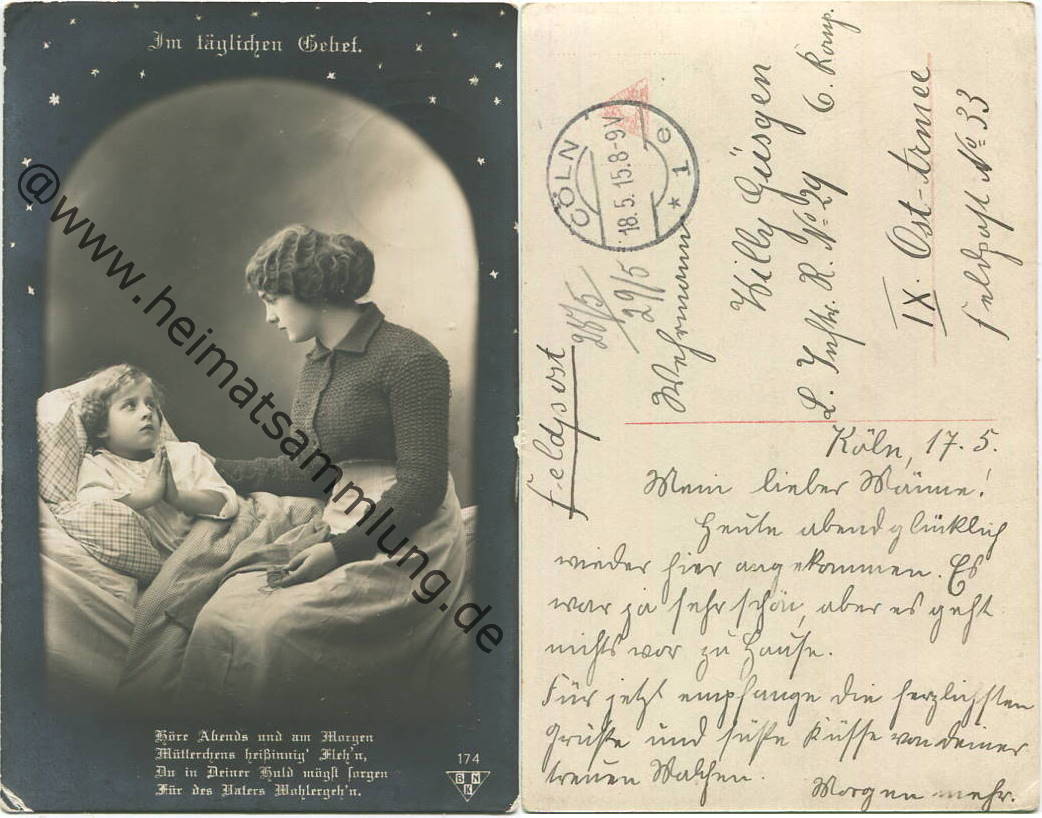 Im täglichen Gebet.
@www.heimatsammlung.de
Höre Abends und am Morgen
Mütterchens heißinnig' Fleh'n,
Du in Deiner Huld mögst sorgen
Für des Vaters Wohlergeh'n.
174
BNK
CÖLN
18.5.15.8-9V
* 1 e
Feldpost
28/5
29/5
Wehrmann
Willy Güsgen
L. Inftr. R. No 29 6. Komp.
IX. Ost-Armee
Feldpost No 33
Köln, 17.5.
Mein lieber Männe!
Heute abend glücklich
wieder hier angekommen. Es
war ja sehr schön, aber es geht
nichts vor zu Hause.
Für jetzt empfange die herzlichsten
Grüße und süße Küsse von Deiner
treuen
Morgen mehr.